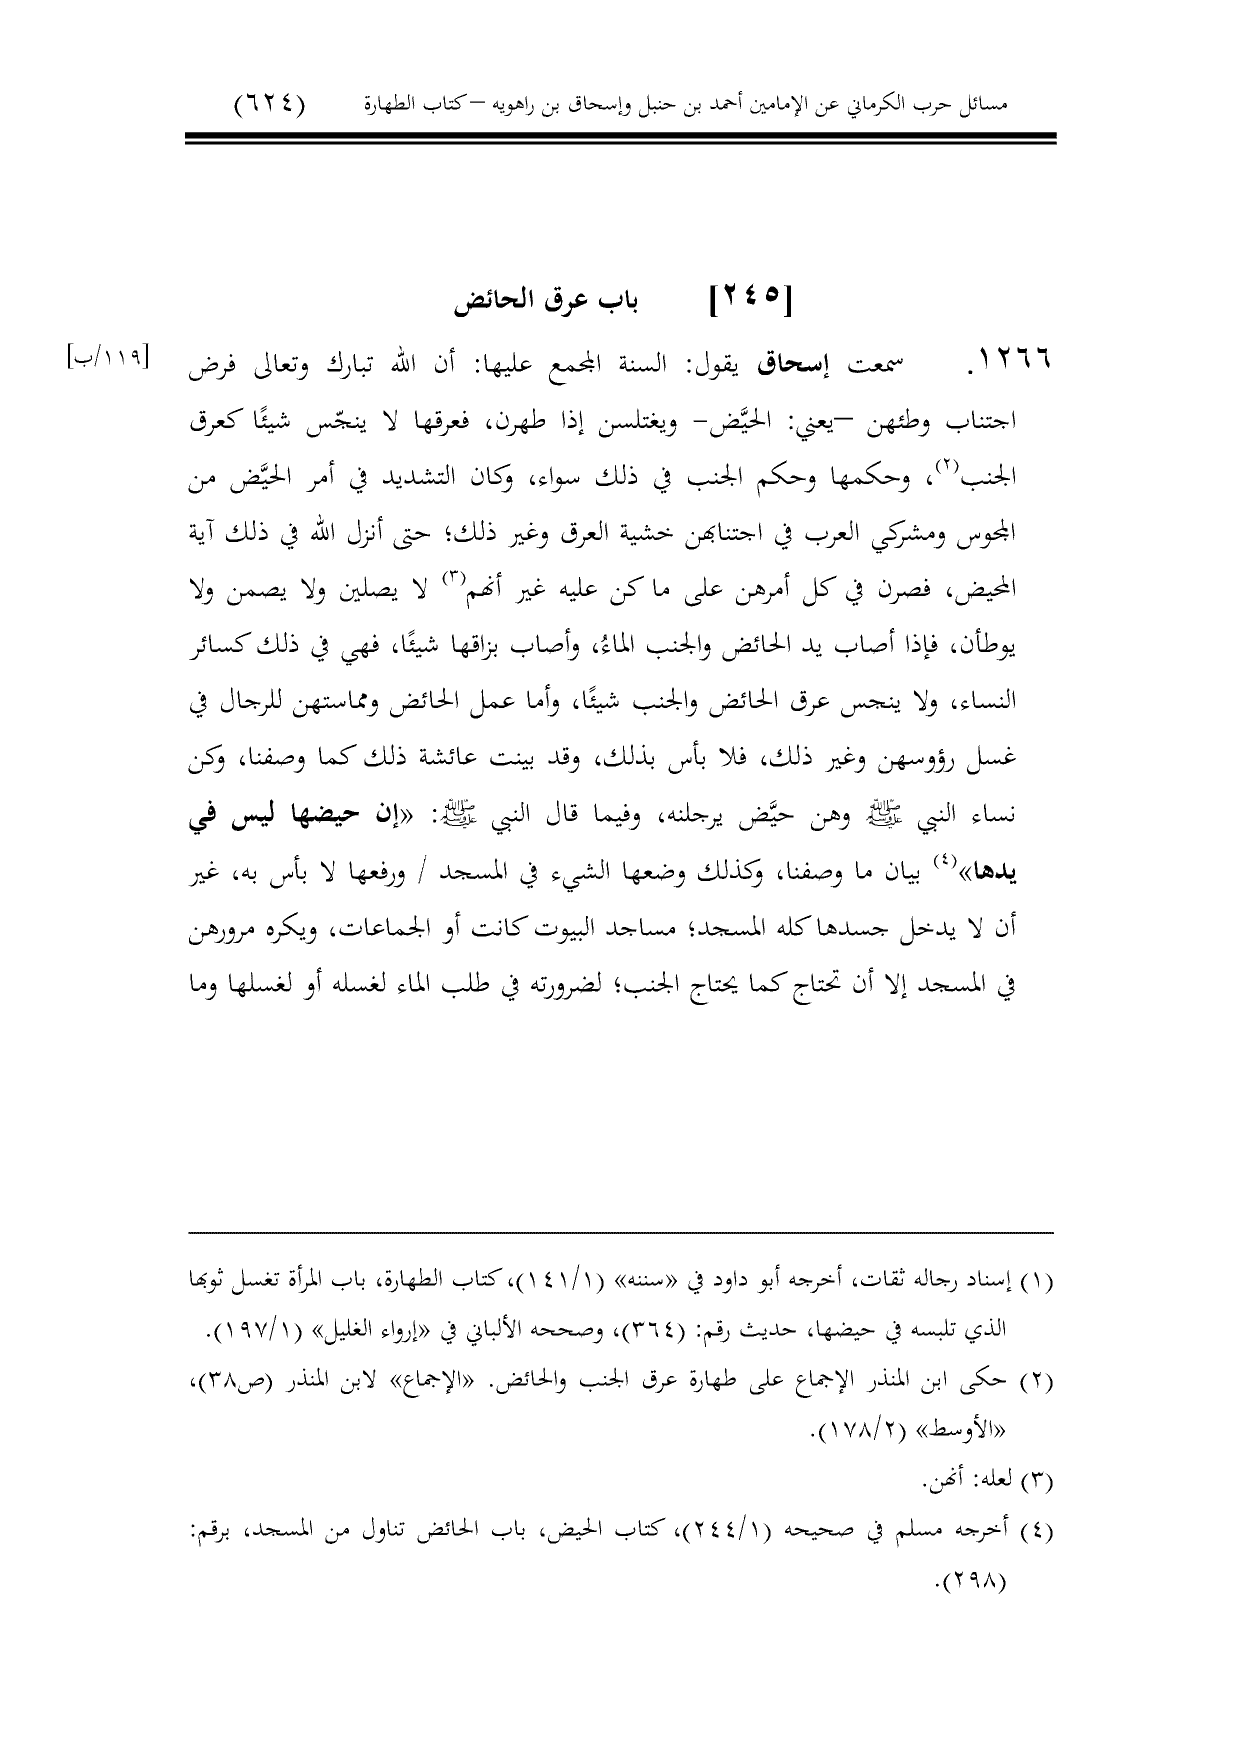 مسائل حرب الكرماني عن الإمامين أحمد بن حنبل وإسحاق بن راهويه –كتاب الطهارة (٦٢٤)
[٢٤٥] باب عرق الحائض
١٢٦٦. سمعت إسحاق يقول: السنة المجمع عليها: أن الله تبارك وتعالى فرض [١١٩/ب]
اجتناب وطئهن –يعني: الحيَّض- ويغتلسن إذا طهرن، فعرقها لا ينجّس شيئًا كعرق
الجنب(٢)، وحكمها وحكم الجنب في ذلك سواء، وكان التشديد في أمر الحيَّض من
المجوس ومشركي العرب في اجتنابهن خشية العرق وغير ذلك؛ حتى أنزل الله في ذلك آية
المحيض، فصرن في كل أمرهن على ما كن عليه غير أنهم(٣) لا يصلين ولا يصمن ولا
يوطأن، فإذا أصاب يد الحائض والجنب الماءُ، وأصاب بزاقها شيئًا، فهي في ذلك كسائر
النساء، ولا ينجس عرق الحائض والجنب شيئًا، وأما عمل الحائض ومماستهن للرجال في
غسل رؤوسهن وغير ذلك، فلا بأس بذلك، وقد بينت عائشة ذلك كما وصفنا، وكن
نساء النبي ﷺ وهن حيَّض يرجلنه، وفيما قال النبي ﷺ: «إن حيضها ليس في
يدها»(٤) بيان ما وصفنا، وكذلك وضعها الشيء في المسجد / ورفعها لا بأس به، غير
أن لا يدخل جسدها كله المسجد؛ مساجد البيوت كانت أو الجماعات، ويكره مرورهن
في المسجد إلا أن تحتاج كما يحتاج الجنب؛ لضرورته في طلب الماء لغسله أو لغسلها وما
(١) إسناد رجاله ثقات، أخرجه أبو داود في «سننه» (١٤١/١)، كتاب الطهارة، باب المرأة تغسل ثوبها
الذي تلبسه في حيضها، حديث رقم: (٣٦٤)، وصححه الألباني في «إرواء الغليل» (١٩٧/١).
(٢) حكى ابن المنذر الإجماع على طهارة عرق الجنب والحائض. «الإجماع» لابن المنذر (ص٣٨)،
«الأوسط» (١٧٨/٢).
(٣) لعله: أنهن.
(٤) أخرجه مسلم في صحيحه (٢٤٤/١)، كتاب الحيض، باب الحائض تناول من المسجد، برقم:
(٢٩٨).